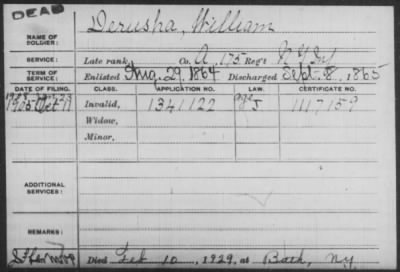 DEAD
Derusha, William
NAME OF SOLDIER:
SERVICE: Late rank, Co. A, 175 Reg't N.Y. Inf.
TERM OF SERVICE: Enlisted Aug. 29, 1864 Discharged Sept. 8, 1865
DATE OF FILING. CLASS. APPLICATION NO. LAW. CERTIFICATE NO.
1905 Oct 11 Invalid, 1341122 J 1117159
Widow,
Minor,
ADDITIONAL SERVICES:
REMARKS:
Died Feb 10, 1929, at Bath, N.Y.